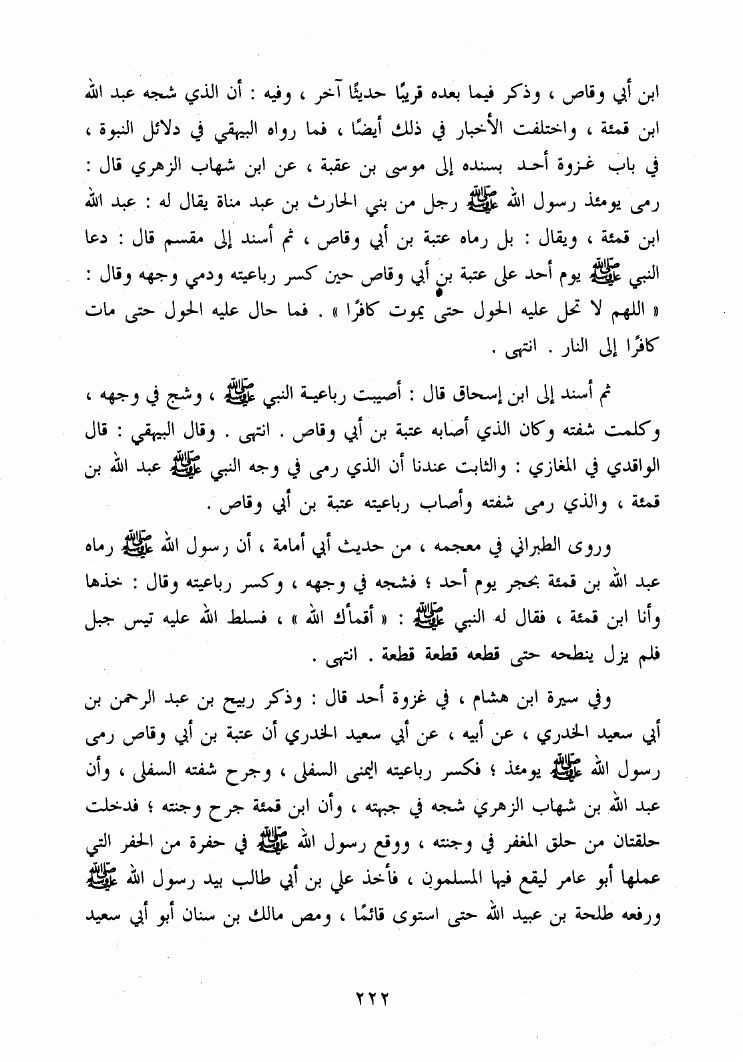 ابن أبي وقاص ، وذكر فيما بعده قريبًا حديثًا آخر ، وفيه : أن الذي شجه عبد الله
ابن قمئة ، واختلفت الأخبار في ذلك أيضًا ، فما رواه البيهقي في دلائل النبوة ،
في باب غزوة أحد بسنده إلى موسى بن عقبة ، عن ابن شهاب الزهري قال :
رمى يومئذ رسول الله ﷺ رجل من بني الحارث بن عبد مناة يقال له : عبد الله
ابن قمئة ، ويقال : بل رماه عتبة بن أبي وقاص ، ثم أسند إلى مقسم قال : دعا
النبي ﷺ يوم أحد على عتبة بن أبي وقاص حين كسر رباعيته ودمي وجهه وقال :
« اللهم لا تحل عليه الحول حتى يموت كافرًا » . فما حال عليه الحول حتى مات
كافرًا إلى النار . انتهى .
ثم أسند إلى ابن إسحاق قال : أصيبت رباعية النبي ﷺ ، وشج في وجهه ،
وكلمت شفته وكان الذي أصابه عتبة بن أبي وقاص . انتهى . وقال البيهقي : قال
الواقدي في المغازي : والثابت عندنا أن الذي رمى في وجه النبي ﷺ عبد الله بن
قمئة ، والذي رمى شفته وأصاب رباعيته عتبة بن أبي وقاص .
وروى الطبراني في معجمه ، من حديث أبي أمامة ، أن رسول الله ﷺ رماه
عبد الله بن قمئة بحجر يوم أحد ؛ فشجه في وجهه ، وكسر رباعيته وقال : خذها
وأنا ابن قمئة ، فقال له النبي ﷺ : « أقمأك الله » ، فسلط الله عليه تيس جبل
فلم يزل ينطحه حتى قطعه قطعة قطعة . انتهى .
وفي سيرة ابن هشام ، في غزوة أحد قال : وذكر ربيح بن عبد الرحمن بن
أبي سعيد الخدري ، عن أبيه ، عن أبي سعيد الخدري أن عتبة بن أبي وقاص رمى
رسول الله ﷺ يومئذ ؛ فكسر رباعيته اليمنى السفلى ، وجرح شفته السفلى ، وأن
عبد الله بن شهاب الزهري شجه في جبهته ، وأن ابن قمئة جرح وجنته ؛ فدخلت
حلقتان من حلق المغفر في وجنته ، ووقع رسول الله ﷺ في حفرة من الحفر التي
عملها أبو عامر ليقع فيها المسلمون ، فأخذ علي بن أبي طالب بيد رسول الله ﷺ
ورفعه طلحة بن عبيد الله حتى استوى قائمًا ، ومص مالك بن سنان أبو أبي سعيد
٢٢٢